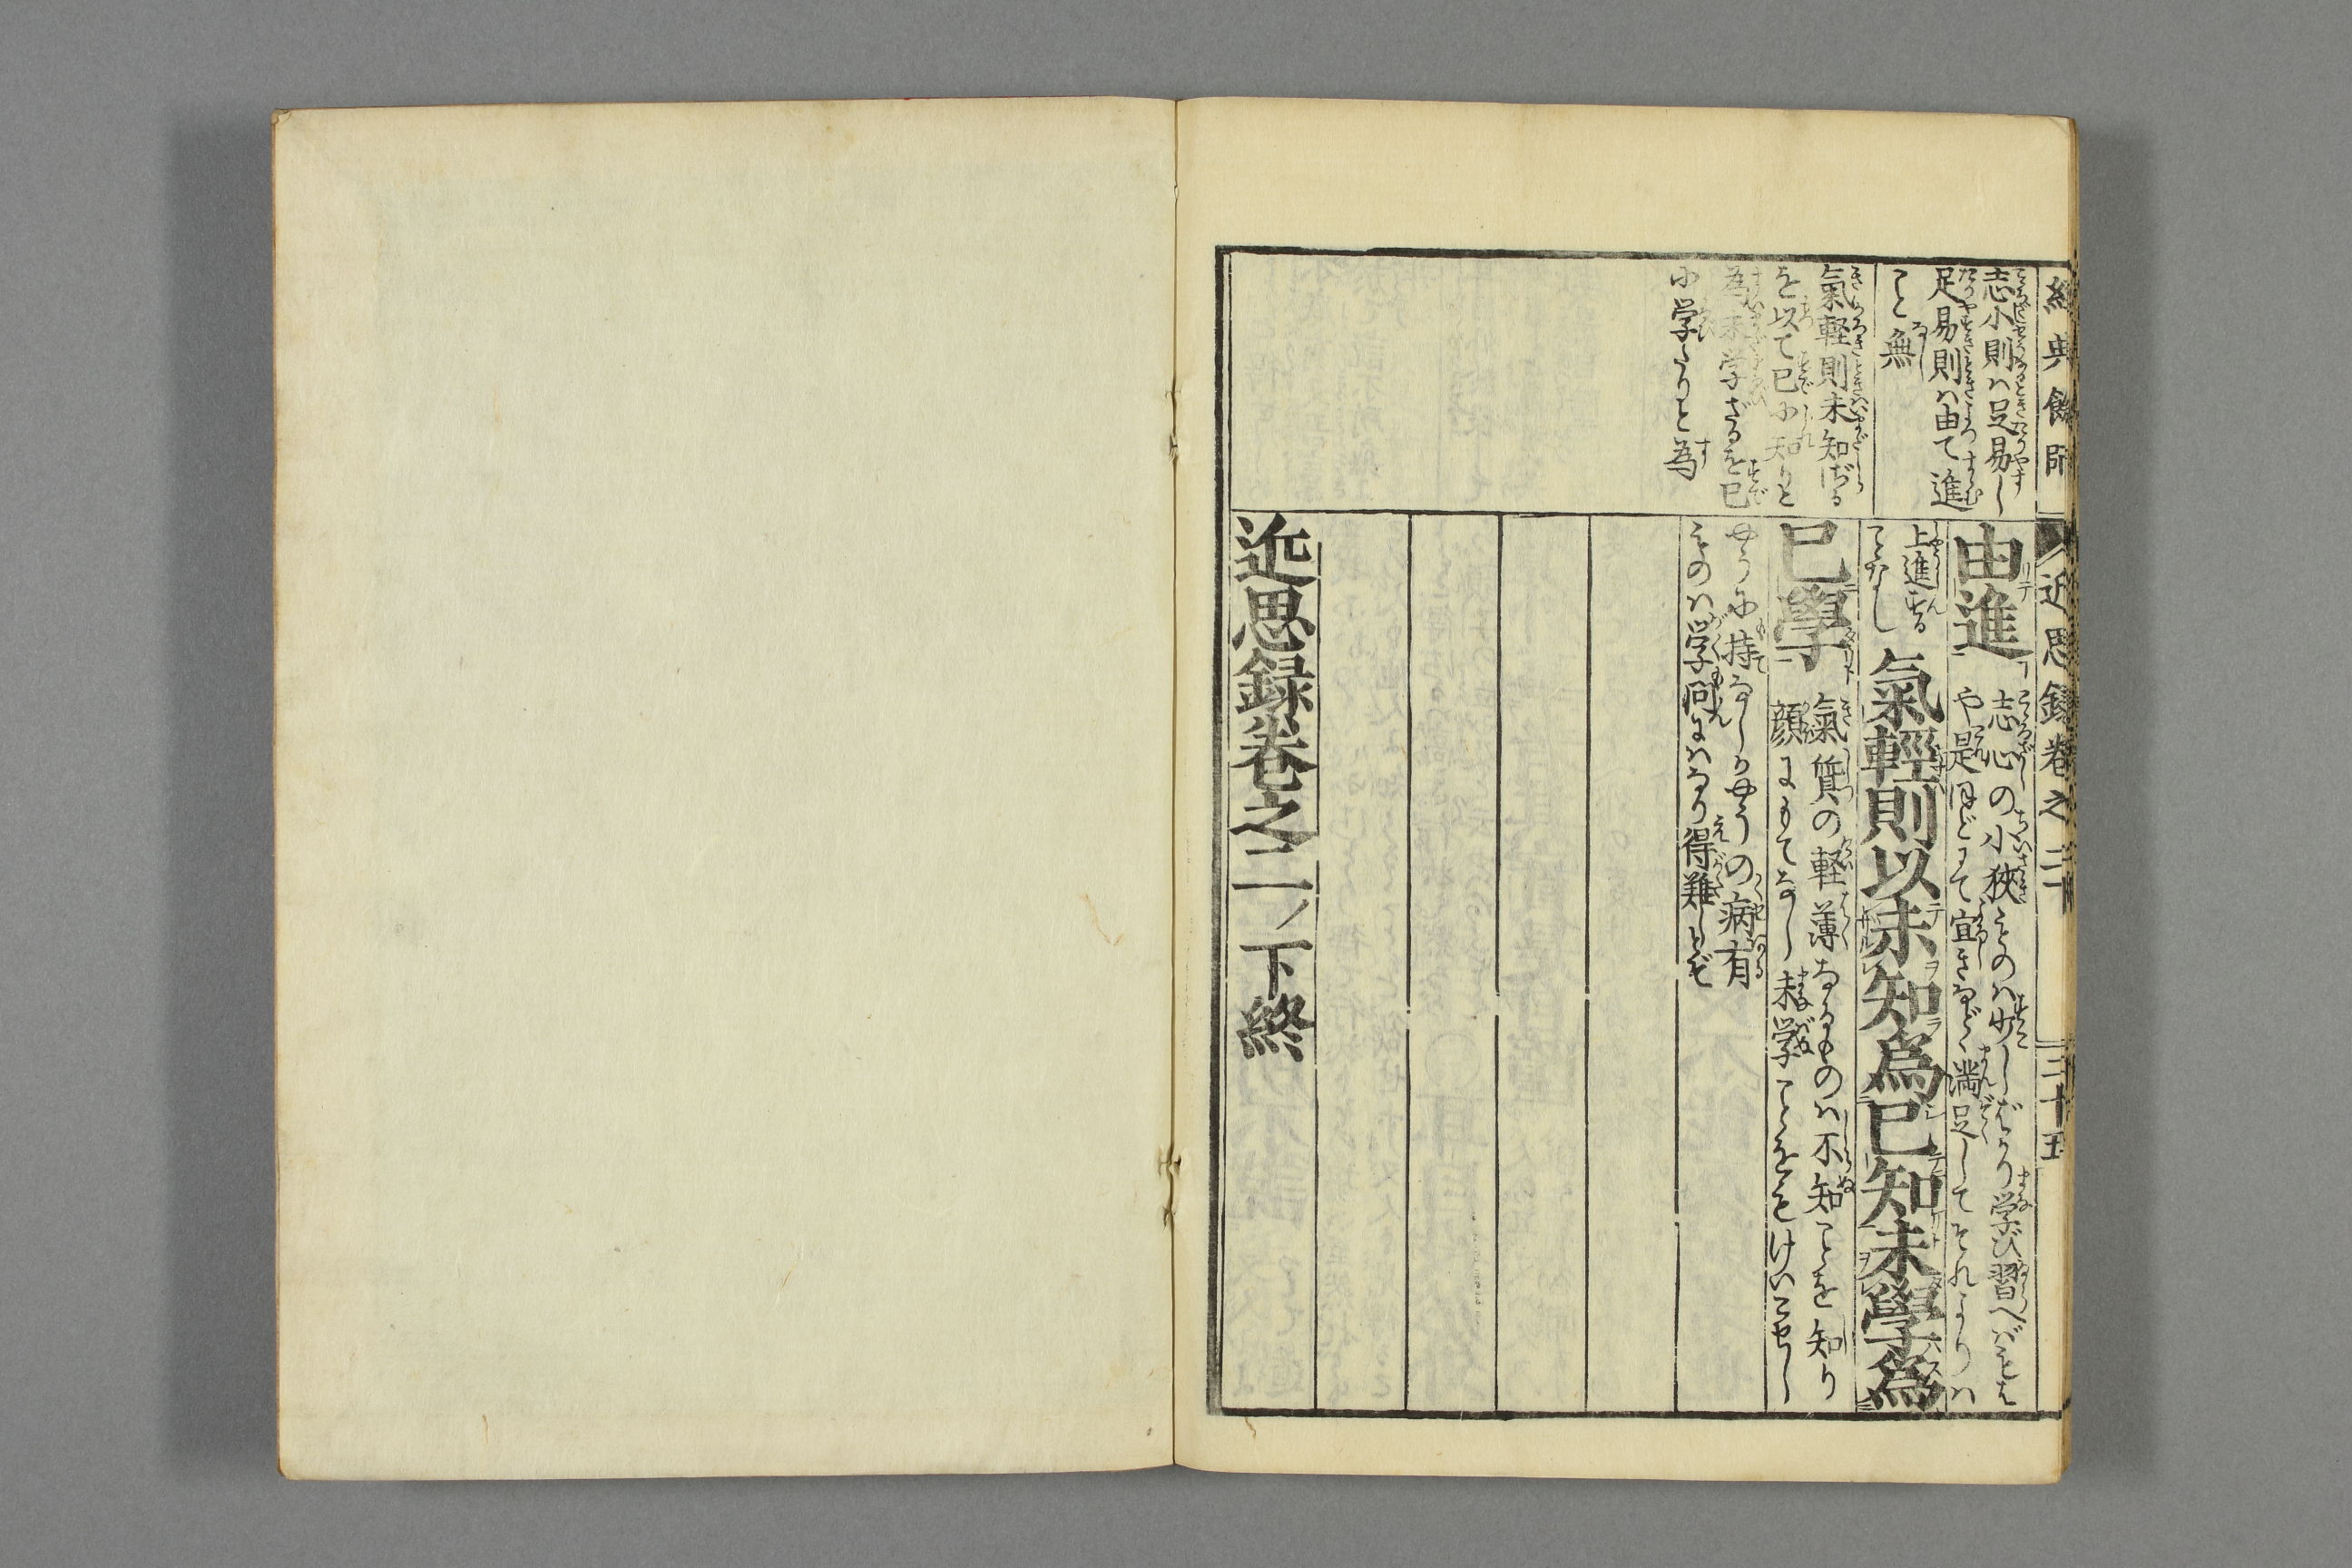 經典餘師
近思録巻之二下
三十五
志小則ハ足易し
足易則ハ由て進
こと無
氣軽則未知ざる
を以て已に知りと
為未学ざるを已
に学たりと為
由進
志心の小狹ものハ少しばかり学び習へばもは
や是ほどにて宜きなどゝ満足してそれよりハ
上進する
ことなし
氣輕則以未知為已知未學為
已學
氣質の軽薄なるものハ不知ことを知り
顔にもてなし未学ことをもけいこせし
やうに持なしかやうの病有
ものハ学問にハなり得難しとぞ
近思録巻之二ノ下終